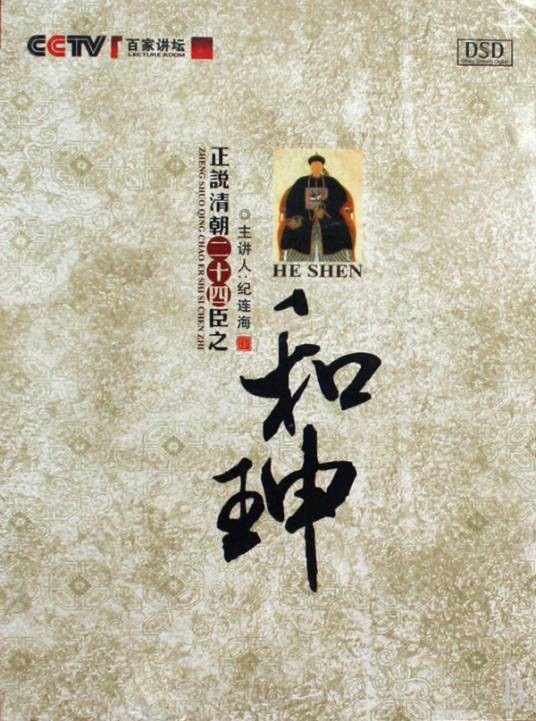 CCTV 百家讲坛
LECTURE ROOM
DSD
正説清朝二十四臣之
ZHENG SHUO QING CHAO ER SHI SI CHEN ZHI
主讲人:纪连海
HE SHEN
和珅